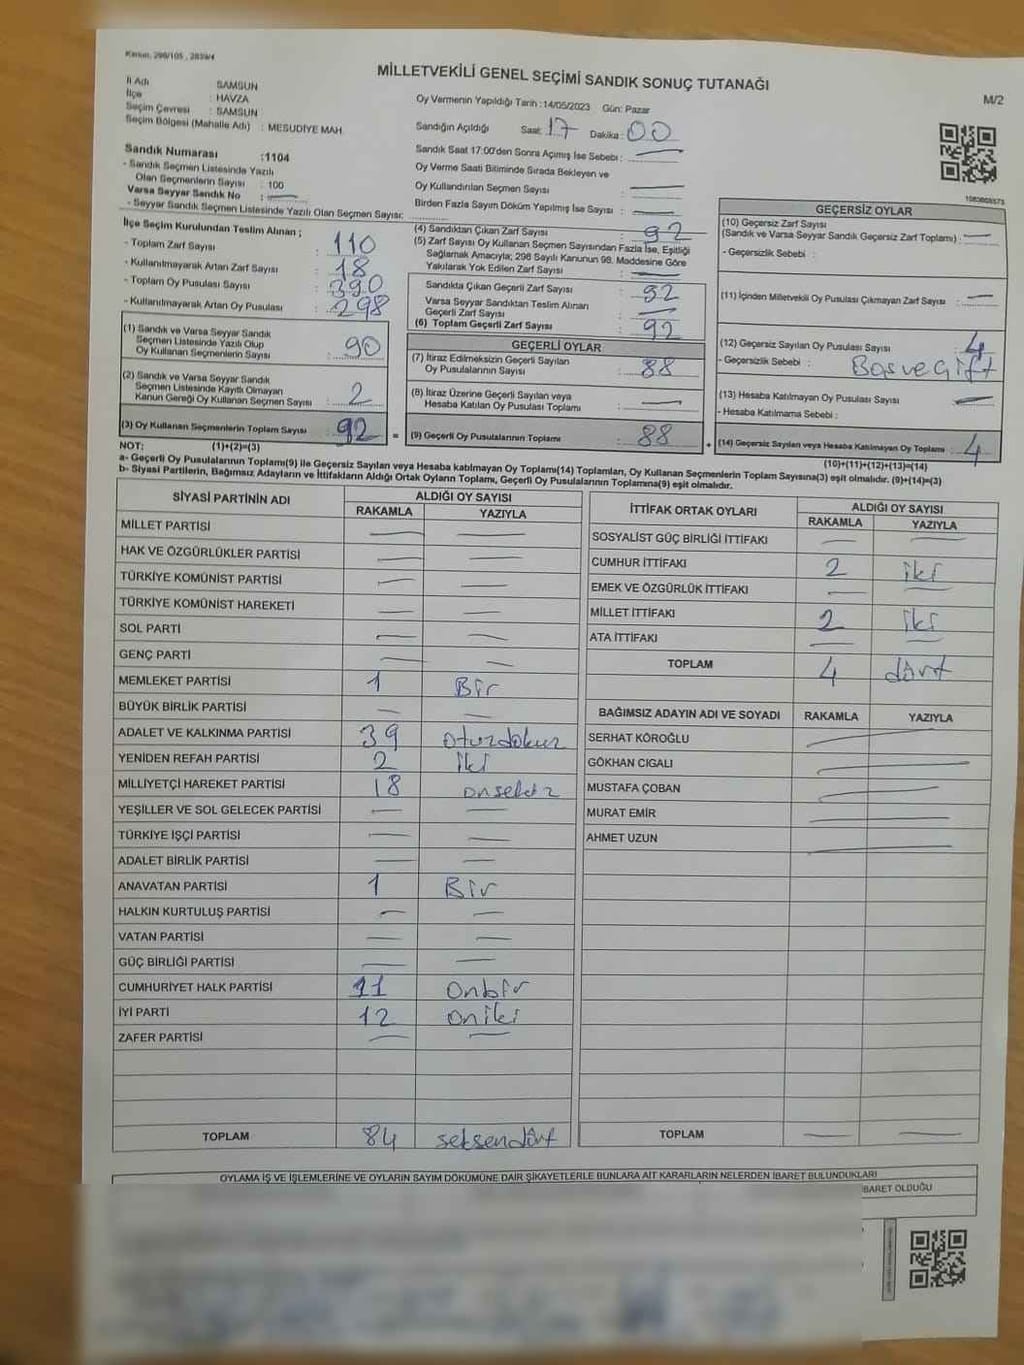 Kanun, 298/105 , 2839/4
MİLLETVEKİLİ GENEL SEÇİMİ SANDIK SONUÇ TUTANAĞI
M/2
İl Adı : SAMSUN
İlçe : HAVZA
Seçim Çevresi : SAMSUN
Seçim Bölgesi (Mahalle Adı) : MESUDİYE MAH.
Sandık Numarası :1104
- Sandık Seçmen Listesinde Yazılı
Olan Seçmenlerin Sayısı : 100
Varsa Seyyar Sandık No : —
- Seyyar Sandık Seçmen Listesinde Yazılı Olan Seçmen Sayısı:
Oy Vermenin Yapıldığı Tarih :14/05/2023 Gün: Pazar
Sandığın Açıldığı Saat: 17 Dakika: 00
Sandık Saat 17:00'den Sonra Açımış İse Sebebi : —
Oy Verme Saati Bitiminde Sırada Bekleyen ve
Oy Kullandırılan Seçmen Sayısı : —
Birden Fazla Sayım Döküm Yapılmış İse Sayısı : —
İlçe Seçim Kurulundan Teslim Alınan ;
- Toplam Zarf Sayısı : 110
- Kullanılmayarak Artan Zarf Sayısı : 18
- Toplam Oy Pusulası Sayısı : 390
- Kullanılmayarak Artan Oy Pusulası : 298
(1) Sandık ve Varsa Seyyar Sandık
Seçmen Listesinde Yazılı Olup
Oy Kullanan Seçmenlerin Sayısı : 90
(2) Sandık ve Varsa Seyyar Sandık
Seçmen Listesinde Kayıtlı Olmayan
Kanun Gereği Oy Kullanan Seçmen Sayısı : 2
(3) Oy Kullanan Seçmenlerin Toplam Sayısı : 92
(4) Sandıktan Çıkan Zarf Sayısı : 92
(5) Zarf Sayısı Oy Kullanan Seçmen Sayısından Fazla İse, Eşitliği
Sağlamak Amacıyla; 298 Sayılı Kanunun 98. Maddesine Göre
Yakılarak Yok Edilen Zarf Sayısı : —
Sandıkta Çıkan Geçerli Zarf Sayısı : 92
Varsa Seyyar Sandıktan Teslim Alınan
Geçerli Zarf Sayısı : —
(6) Toplam Geçerli Zarf Sayısı : 92
GEÇERLİ OYLAR
(7) İtiraz Edilmeksizin Geçerli Sayılan
Oy Pusulalarının Sayısı : 88
(8) İtiraz Üzerine Geçerli Sayılan veya
Hesaba Katılan Oy Pusulası Toplamı : —
= (9) Geçerli Oy Pusulalarının Toplamı : 88
GEÇERSİZ OYLAR
(10) Geçersiz Zarf Sayısı
(Sandık ve Varsa Seyyar Sandık Geçersiz Zarf Toplamı) : —
- Geçersizlik Sebebi :
(11) İçinden Milletvekili Oy Pusulası Çıkmayan Zarf Sayısı : —
(12) Geçersiz Sayılan Oy Pusulası Sayısı : 4
- Geçersizlik Sebebi : Boş ve Çift
(13) Hesaba Katılmayan Oy Pusulası Sayısı : —
- Hesaba Katılmama Sebebi :
+ (14) Geçersiz Sayılan veya Hesaba Katılmayan Oy Toplamı : 4
NOT: (1)+(2)=(3)
(10)+(11)+(12)+(13)=(14)
a- Geçerli Oy Pusulalarının Toplamı(9) ile Geçersiz Sayılan veya Hesaba katılmayan Oy Toplamı(14) Toplamları, Oy Kullanan Seçmenlerin Toplam Sayısına(3) eşit olmalıdır. (9)+(14)=(3)
b- Siyasi Partilerin, Bağımsız Adayların ve İttifakların Aldığı Ortak Oyların Toplamı, Geçerli Oy Pusulalarının Toplamına(9) eşit olmalıdır.
SİYASİ PARTİNİN ADI ALDIĞI OY SAYISI
RAKAMLA YAZIYLA
MİLLET PARTİSİ — —
HAK VE ÖZGÜRLÜKLER PARTİSİ — —
TÜRKİYE KOMÜNİST PARTİSİ — —
TÜRKİYE KOMÜNİST HAREKETİ — —
SOL PARTİ — —
GENÇ PARTİ — —
MEMLEKET PARTİSİ 1 Bir
BÜYÜK BİRLİK PARTİSİ — —
ADALET VE KALKINMA PARTİSİ 39 otuzdokuz
YENİDEN REFAH PARTİSİ 2 iki
MİLLİYETÇİ HAREKET PARTİSİ 18 onsekiz
YEŞİLLER VE SOL GELECEK PARTİSİ — —
TÜRKİYE İŞÇİ PARTİSİ — —
ADALET BİRLİK PARTİSİ — —
ANAVATAN PARTİSİ 1 Bir
HALKIN KURTULUŞ PARTİSİ — —
VATAN PARTİSİ — —
GÜÇ BİRLİĞİ PARTİSİ — —
CUMHURİYET HALK PARTİSİ 11 Onbir
İYİ PARTİ 12 oniki
ZAFER PARTİSİ — —
TOPLAM 84 seksendört
İTTİFAK ORTAK OYLARI ALDIĞI OY SAYISI
RAKAMLA YAZIYLA
SOSYALİST GÜÇ BİRLİĞİ İTTİFAKI — —
CUMHUR İTTİFAKI 2 iki
EMEK VE ÖZGÜRLÜK İTTİFAKI — —
MİLLET İTTİFAKI 2 iki
ATA İTTİFAKI — —
TOPLAM 4 dört
BAĞIMSIZ ADAYIN ADI VE SOYADI RAKAMLA YAZIYLA
SERHAT KÖROĞLU —
GÖKHAN CIGALI —
MUSTAFA ÇOBAN —
MURAT EMİR —
AHMET UZUN —
TOPLAM — —
OYLAMA İŞ VE İŞLEMLERİNE VE OYLARIN SAYIM DÖKÜMÜNE DAİR ŞİKAYETLERLE BUNLARA AİT KARARLARIN NELERDEN İBARET BULUNDUKLARI
İBARET OLDUĞU